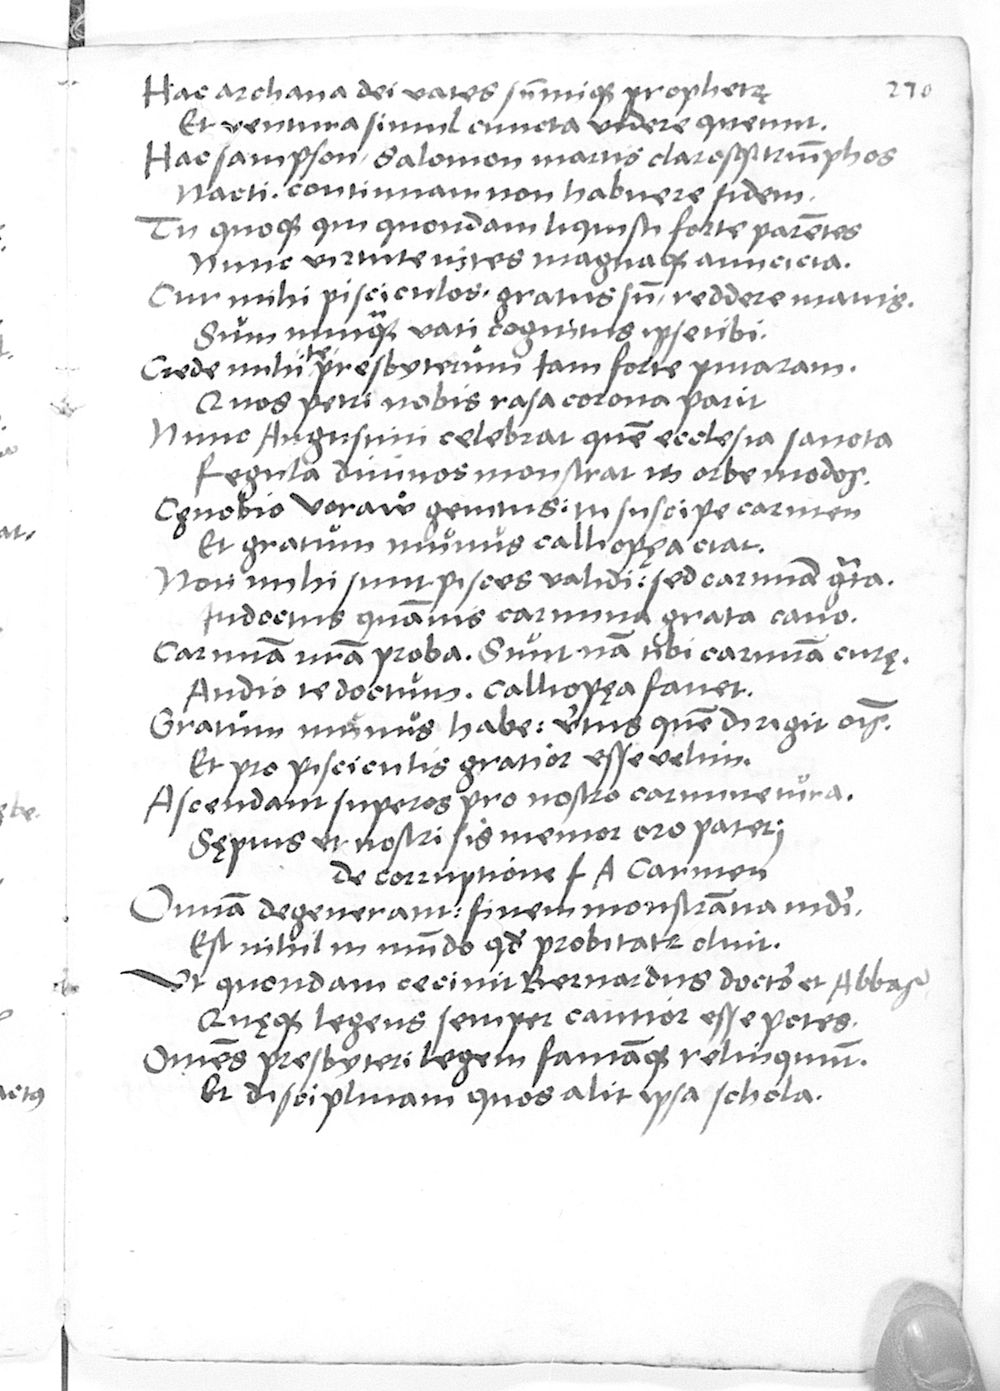 270
Hac archana dei vates sũmiq₃ prophetę
Et ventura simul cuncta videre queunt.
Hac sampson / Salomon martis clarosq₃ triũphos
Nacti. continuam non habuere fidem.
Tu quoq₃ qui quondam liquisti forte parẽtes
Nunc virtute vires magnaq₃ amicicia.
Cur mihi pisciculos. gratus sũ / reddere mauis.
Sum nunq̃₃ vati cognitus ipse tibi.
Crede mihi te presbyterum iam forte putaram.
Quos petri nobis rasa corona parit
Nunc Augustini celebrat quẽ ecclesia sancta
Regula diuinos monstrat in orbe modos.
Cęnobio genitus: tu suscipe carmen
Et gratum munus calliopęa ciat.
Non mihi sunt pisces validi: sed carmĩa gr̃ta.
Indoctus quãuis carmina grata cano.
Carmĩa nr̃a proba. Sunt nã tibi carmĩa curę.
Audio te doctum. Calliopęa fauet.
Gratum munus habe: quẽ dirigit oĩs.
Et pro pisciculis gratior esse velim.
Ascendant superos pro nostro carmine tura.
Sępius et nostri sis memor oro pater;
De corruptione f A Carmen
Omĩa degenerant: finem monstrãtia mũdi.
Est nihil in mũdo qď probitate cluit.
Ut quondam cecinit Bernardus doctor et Abbas
Quęq₃ legens semper cautior esse potes.
Omẽs presbyteri legem famãq₃ relinquũt.
Et disciplinam quos alit ipsa schola.